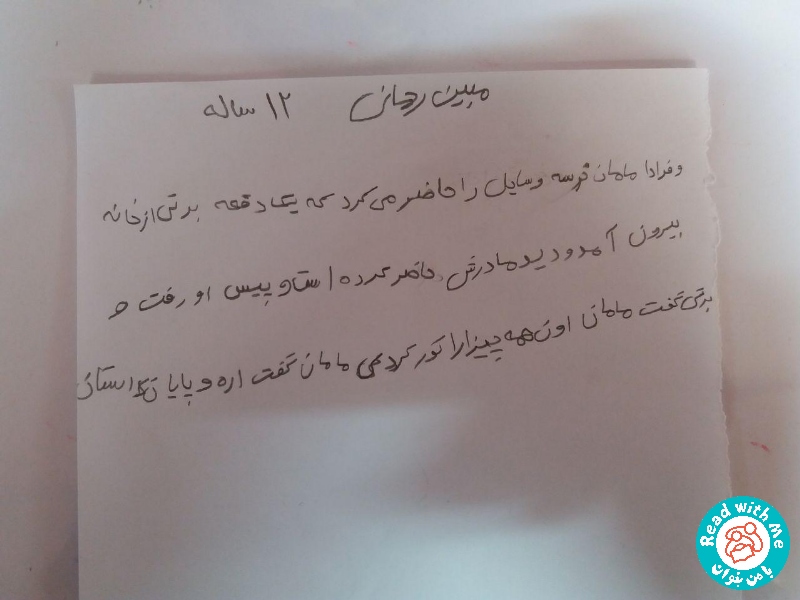 مبین رحمانی ۱۲ ساله
و فرادا مامان خرسه وسایل را حاضر می کرد که یکدقعه برتی از خانه
بیرون آمد و دید مادرش حاضر کرده است و پیس او رفت و
برتی گفت مامان اون همه چیزارا تور کردی مامان گفت اره و پایان داستان
Read with Me
با من بخوان